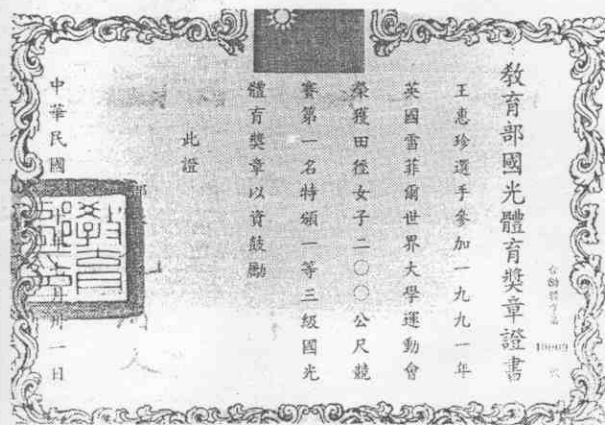 教育部國光體育獎章證書
王惠珍選手參加一九九一年
英國雪菲爾世界大學運動會
榮獲田徑女子二〇〇公尺競
賽第一名特頒一等三級國光
體育獎章以資鼓勵
此證
中華民國
月卅一日